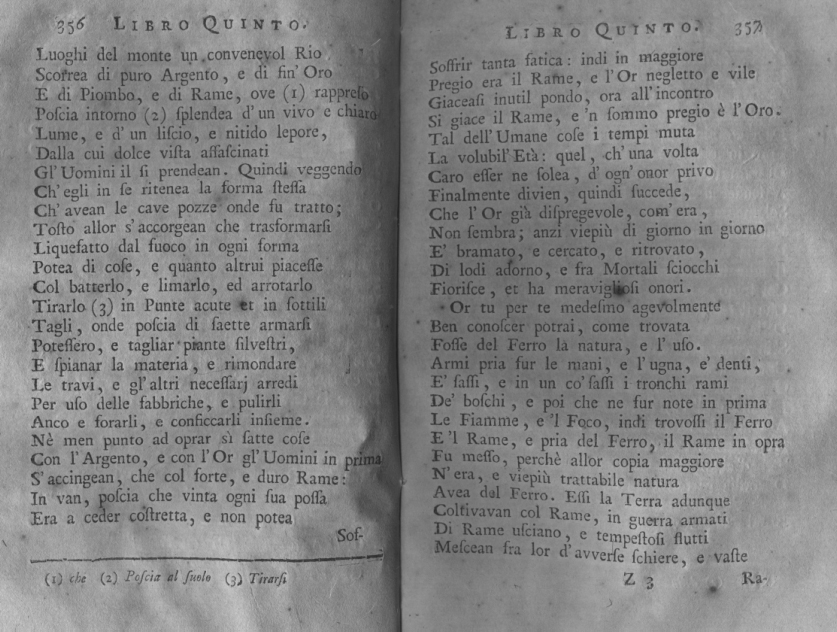 356 LIBRO QUINTO.
Luoghi del monte un convenevol Rio
Scorrea di puro Argento, e di fin' Oro
E di Piombo, e di Rame, ove (1) rappreſo
Poſcia intorno (2) ſplendea d'un vivo e chiaro
Lume, e d'un liſcio, e nitido lepore,
Dalla cui dolce viſta aſſaſcinati
Gl'Uomini il ſi prendean. Quindi veggendo
Ch'egli in ſe ritenea la forma ſteſſa
Ch'avean le cave pozze onde fu tratto;
Toſto allor s'accorgean che trasformarſi
Liquefatto dal fuoco in ogni forma
Potea di coſe, e quanto altrui piaceſſe
Col batterlo, e limarlo, ed arrotarlo
Tirarlo (3) in Punte acute et in ſottili
Tagli, onde poſcia di ſaette armarſi
Poteſſero, e tagliar piante ſilveſtri,
E ſpianar la materia, e rimondare
Le travi, e gl'altri neceſſarj arredi
Per uſo delle fabbriche, e pulirli
Anco e forarli, e conficcarli inſieme.
Nè men punto ad oprar sì fatte coſe
Con l'Argento, e con l'Or gl'Uomini in prima
S'accingean, che col forte, e duro Rame:
In van, poſcia che vinta ogni ſua poſſa
Era a ceder coſtretta, e non potea
Sof-
(1) che (2) Poſcia al ſuolo (3) Tirarſi
LIBRO QUINTO. 357
Soffrir tanta fatica: indi in maggiore
Pregio era il Rame, e l'Or negletto e vile
Giaceaſi inutil pondo, ora all'incontro
Si giace il Rame, e 'n ſommo pregio è l'Oro.
Tal dell'Umane coſe i tempi muta
La volubil'Età: quel, ch'una volta
Caro eſſer ne ſolea, d'ogn'onor privo
Finalmente divien, quindi ſuccede,
Che l'Or già diſpregevole, com'era,
Non ſembra; anzi viepiù di giorno in giorno
E' bramato, e cercato, e ritrovato,
Di lodi adorno, e fra Mortali ſciocchi
Fioriſce, et ha meraviglioſi onori.
Or tu per te medeſmo agevolmente
Ben conoſcer potrai, come trovata
Foſſe del Ferro la natura, e l'uſo.
Armi pria fur le mani, e l'ugna, e' denti,
E' ſaſſi, e in un co' ſaſſi i tronchi rami
De' boſchi, e poi che ne fur note in prima
Le Fiamme, e 'l Foco, indi trovoſſi il Ferro
E 'l Rame, e pria del Ferro, il Rame in opra
Fu meſſo, perchè allor copia maggiore
N'era, e viepiù trattabile natura
Avea del Ferro. Eſſi la Terra adunque
Coltivavan col Rame, in guerra armati
Di Rame uſciano, e tempeſtoſi flutti
Meſcean fra lor d'avverſe ſchiere, e vaſte
Z 3 Ra-